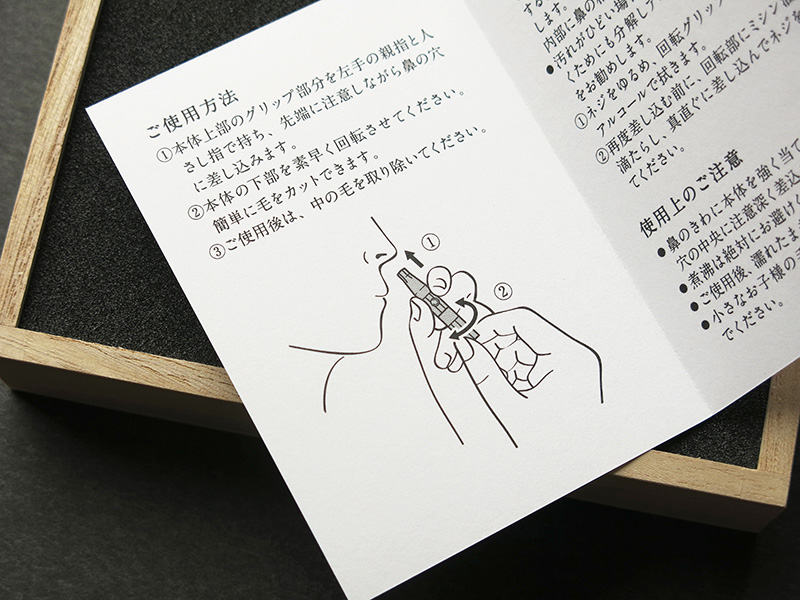 ご使用方法
①本体上部のグリップ部分を左手の親指と人
さし指で持ち、先端に注意しながら鼻の穴
に差し込みます。
②本体の下部を素早く回転させてください。
簡単に毛をカットできます。
③ご使用後は、中の毛を取り除いてください。
①
②
します。
内部に鼻の
●汚れがひどい場
くためにも分解し
をお勧めします。
①ネジをゆるめ、回転グリップ
アルコールで拭きます。
②再度差し込む前に、回転部にミシン
滴たらし、真直ぐに差し込んでネジを
てください。
使用上のご注意
●鼻のきわに本体を強く当て
穴の中央に注意深く差込
●煮沸は絶対にお避け
●ご使用後、濡れたま
●小さなお子様の
でください。